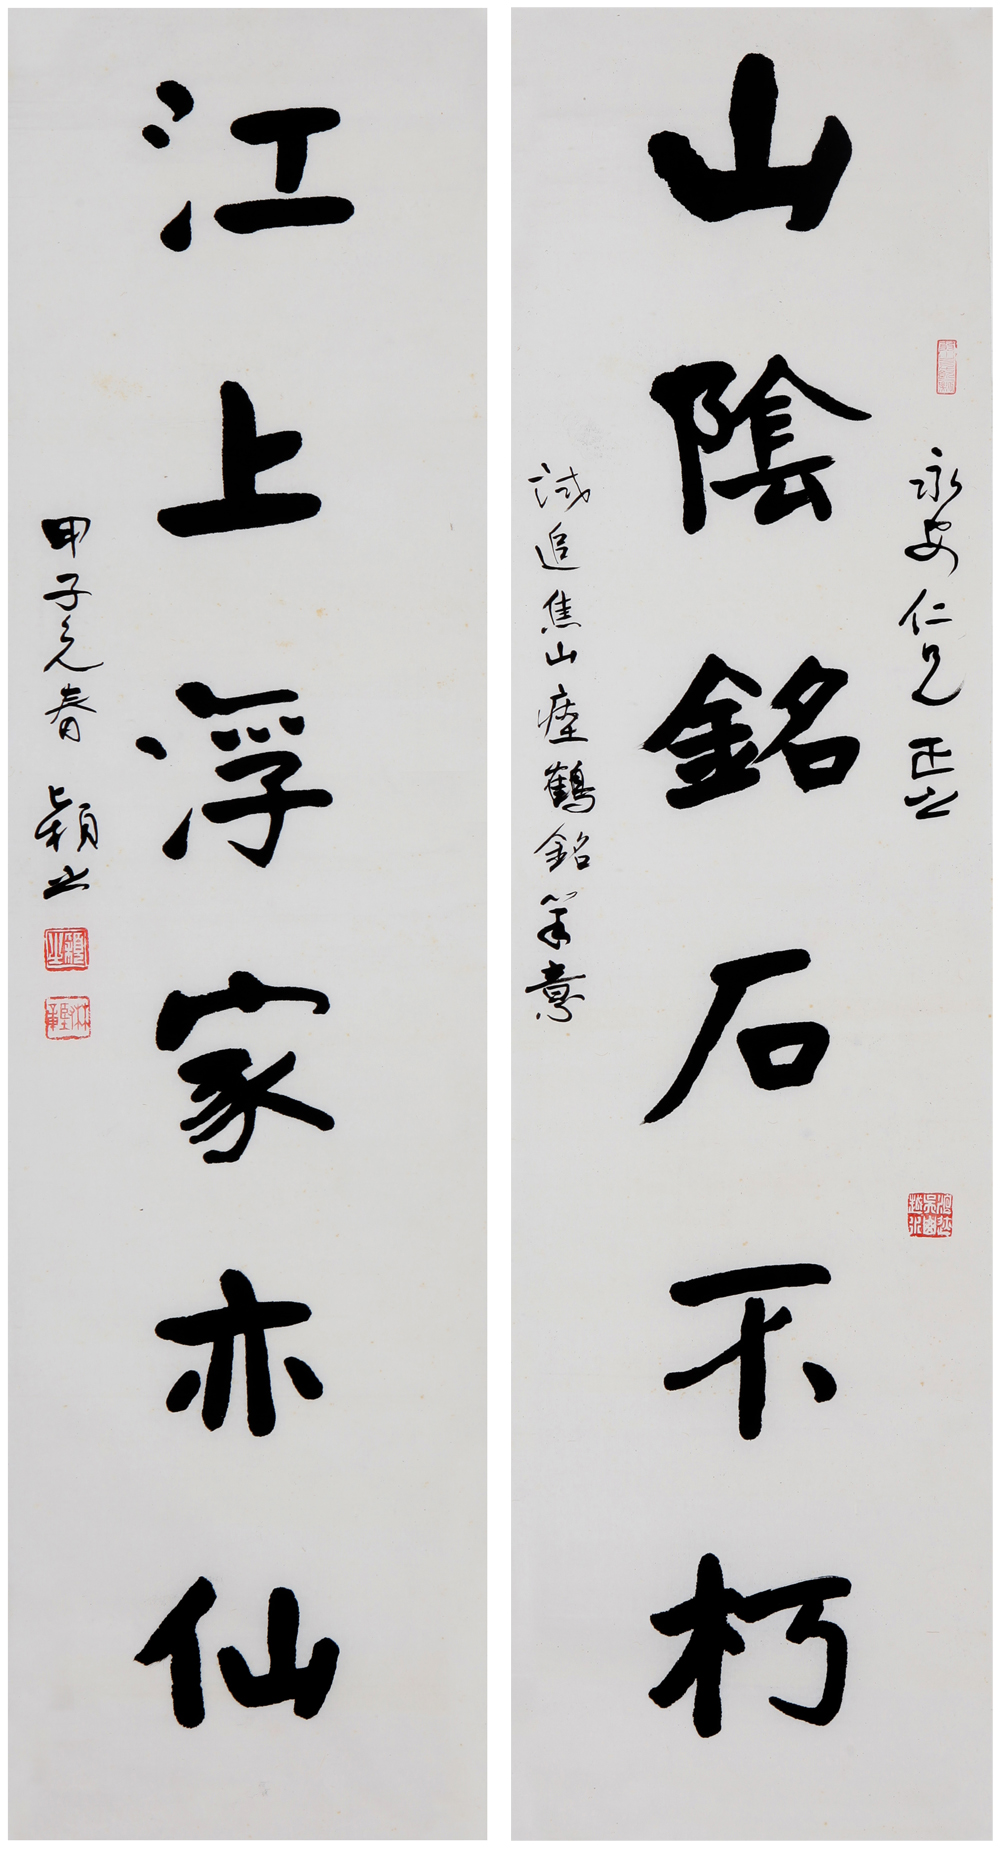 永安仁兄正之
山陰銘石不朽
試追焦山瘞鶴銘筆意
江上浮家亦仙
甲子元春 穎之
穎之